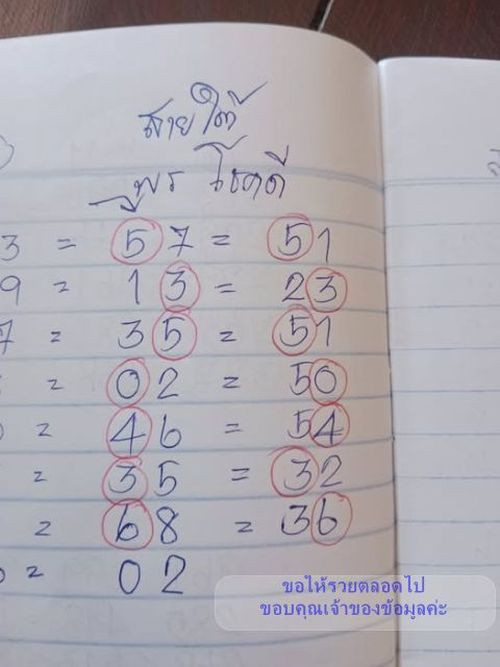 สายใต้
ภูพร โชคดี
3 = 57 = 51
9 = 13 = 23
7 = 35 = 51
= 02 = 50
= 46 = 54
= 35 = 32
= 68 = 36
= 02
ขอให้รวยตลอดไป
ขอบคุณเจ้าของข้อมูลค่ะ